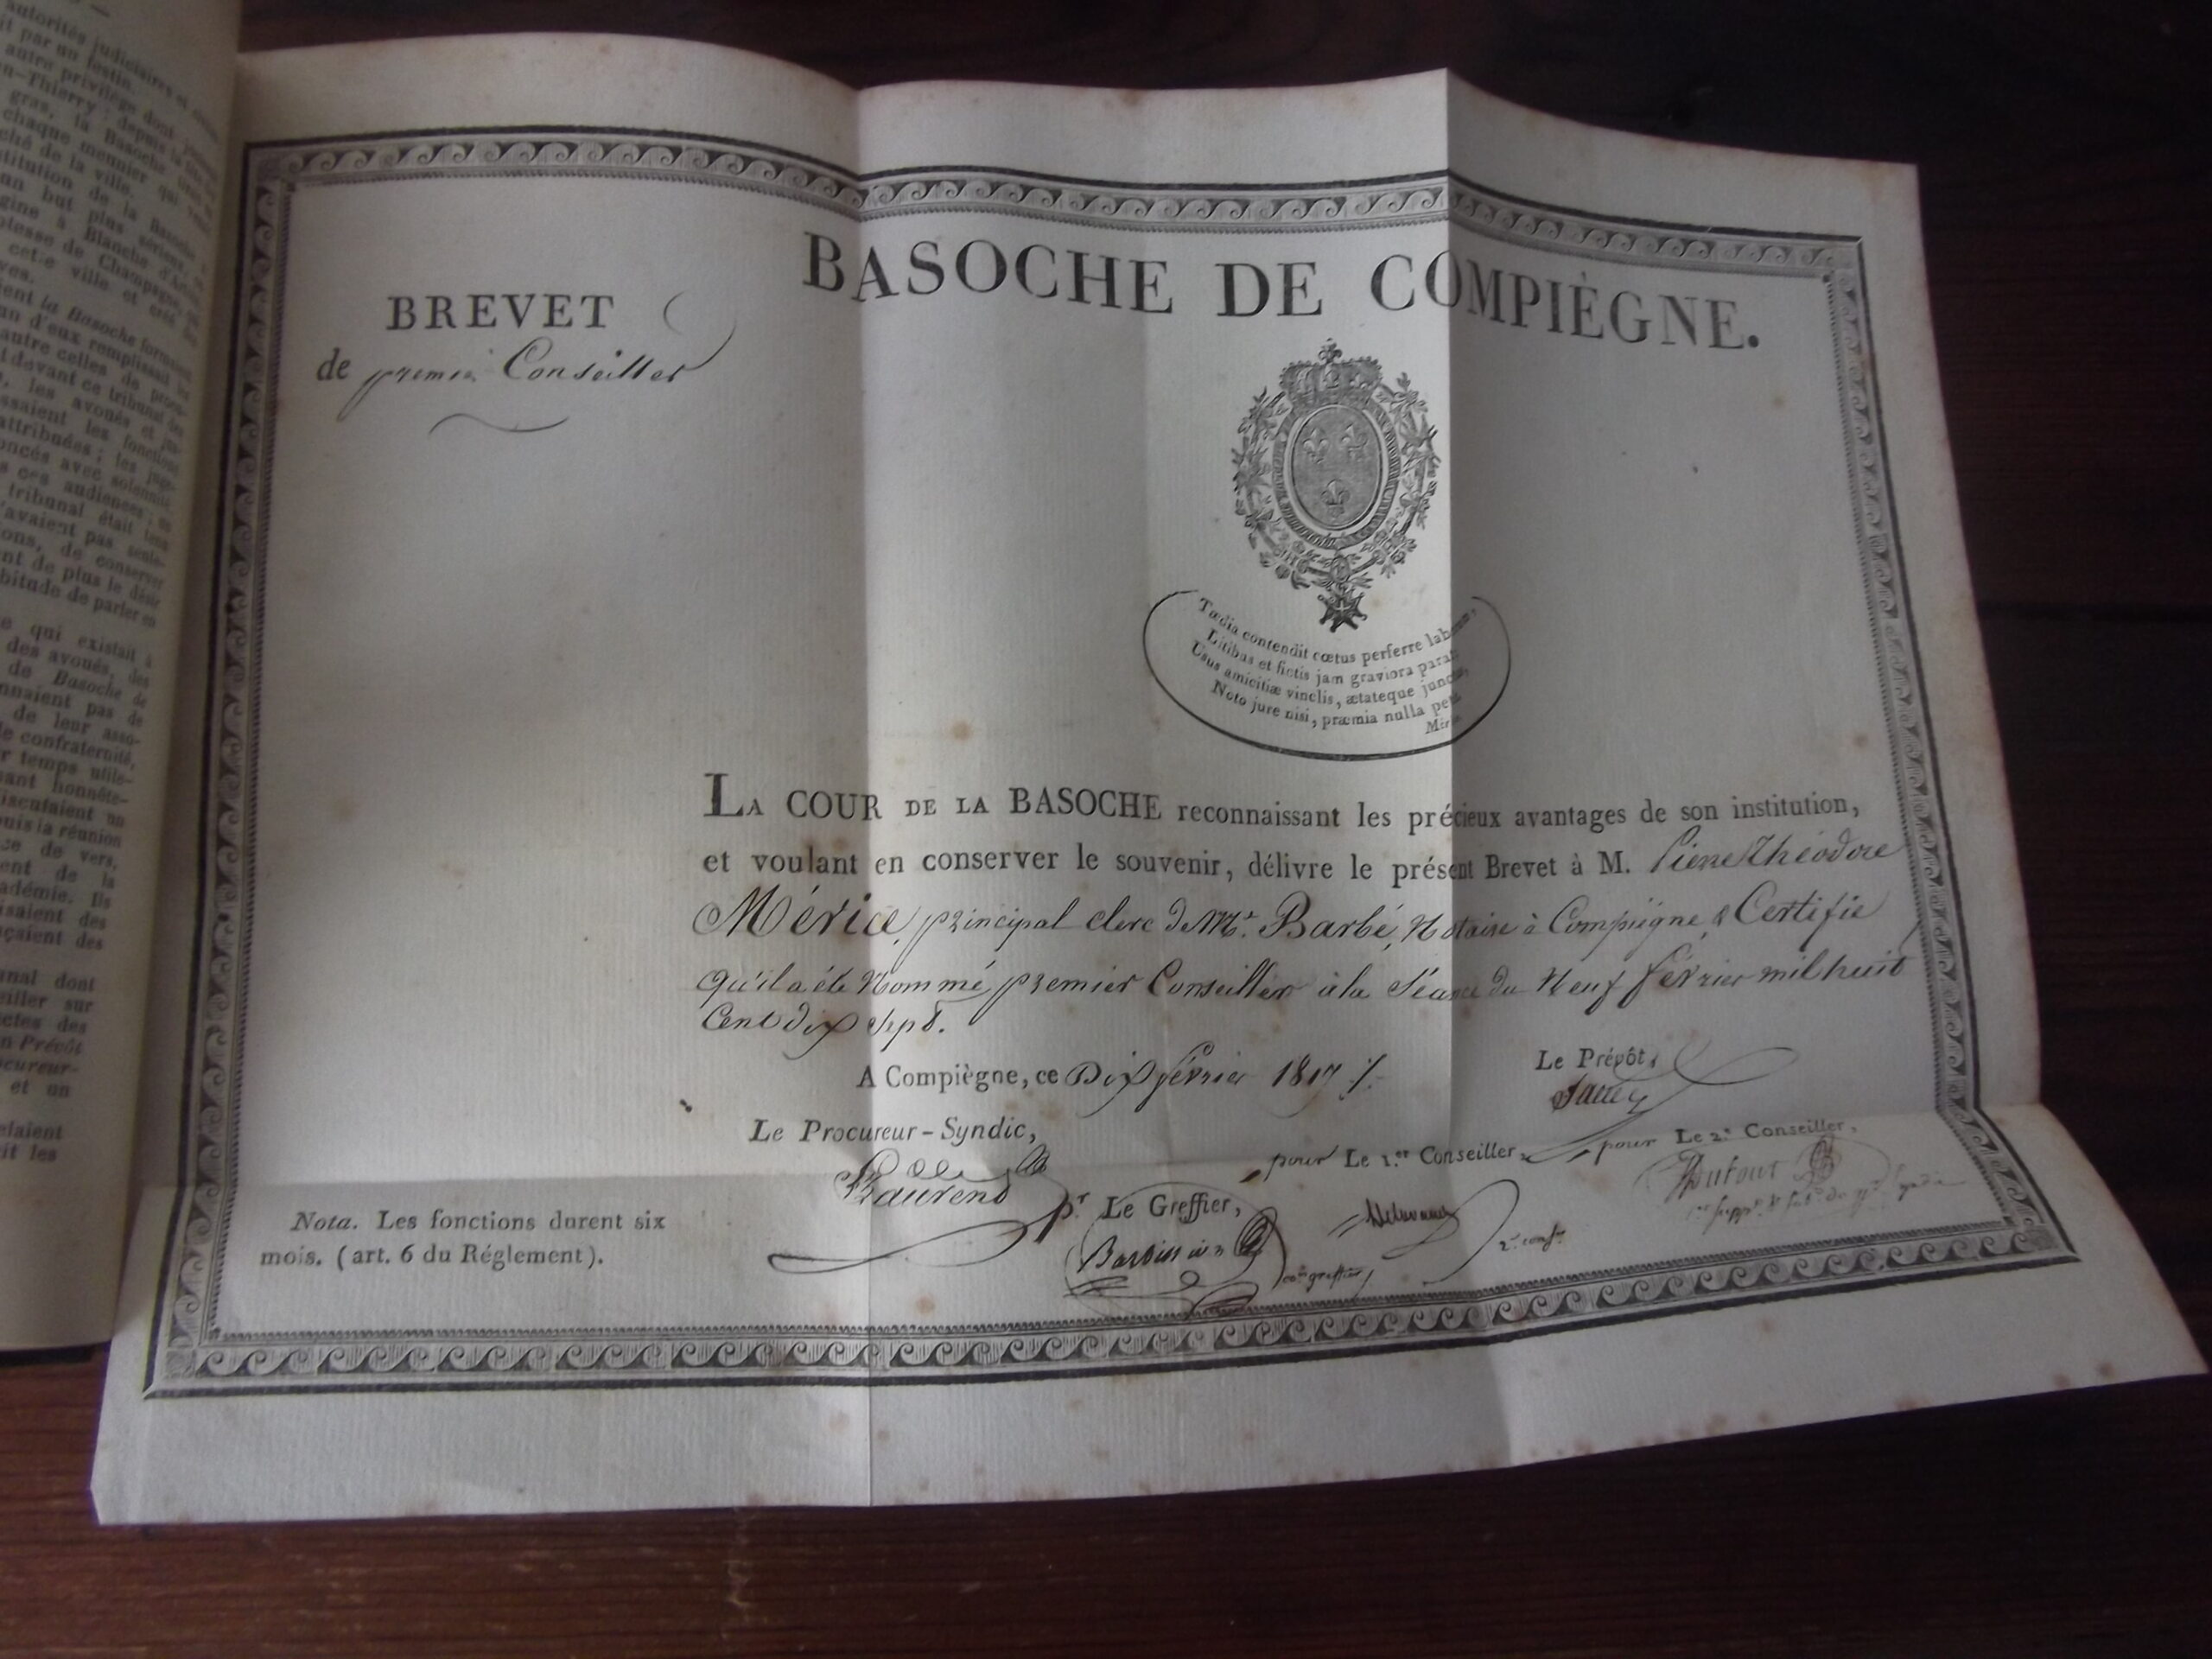 autorités judiciaires et
par un festin.
autre privilège dont
n-Thierry; depuis la
gras, la Basoche
chaque meunier qui
ché de la ville.
titution de la Basoche
un but plus sérieux
gine à Blanche d'Artois
tesse de Champagne
cette ville et
ent la Basoche formaient
un d'eux remplissait
autre celles de
devant ce tribunal des
les avoués et
ssaient les fonctions
attribuées; les juge-
oncés avec solennité
ces audiences;
tribunal était
avaient pas seule-
ons, de conserver
nt de plus le désir
bitude de parler en
e qui existait à
des avoués, des
de Basoche de
nnaient pas de
de leur asso-
e confraternité,
r temps utile-
sant honnête-
iscutaient un
uis la réunion
ce de vers,
ent de la
adémie. Ils
saient des
çaient des
unal dont
eiller sur
ctes des
n Prévôt
cureur-
et un
elaient
it les
BASOCHE DE COMPIÈGNE.
BREVET
de premier Conseiller
Tœdia contendit cœtus perferre laborum,
Litibus et fictis jam graviora parat
Usus amicitiæ vinclis, ætateque junctus,
Noto jure nisi, præmia nulla petit
LA COUR DE LA BASOCHE reconnaissant les précieux avantages de son institution,
et voulant en conserver le souvenir, délivre le présent Brevet à M. Pierre Théodore
Mérice, principal clerc de Mt. Barbé, Notaire à Compiègne, & Certifie
qu'il a été Nommé premier Conseiller à la Séance du Neuf février mil huit
Cent dix Sept.
A Compiègne, ce Dix février 1817 /.
Le Prévôt,
Le Procureur-Syndic,
pour Le 1.er Conseiller,
pour Le 2.e Conseiller,
Laurens
Dufour
pr. Le Greffier,
Nota. Les fonctions durent six
mois. (art. 6 du Réglement).